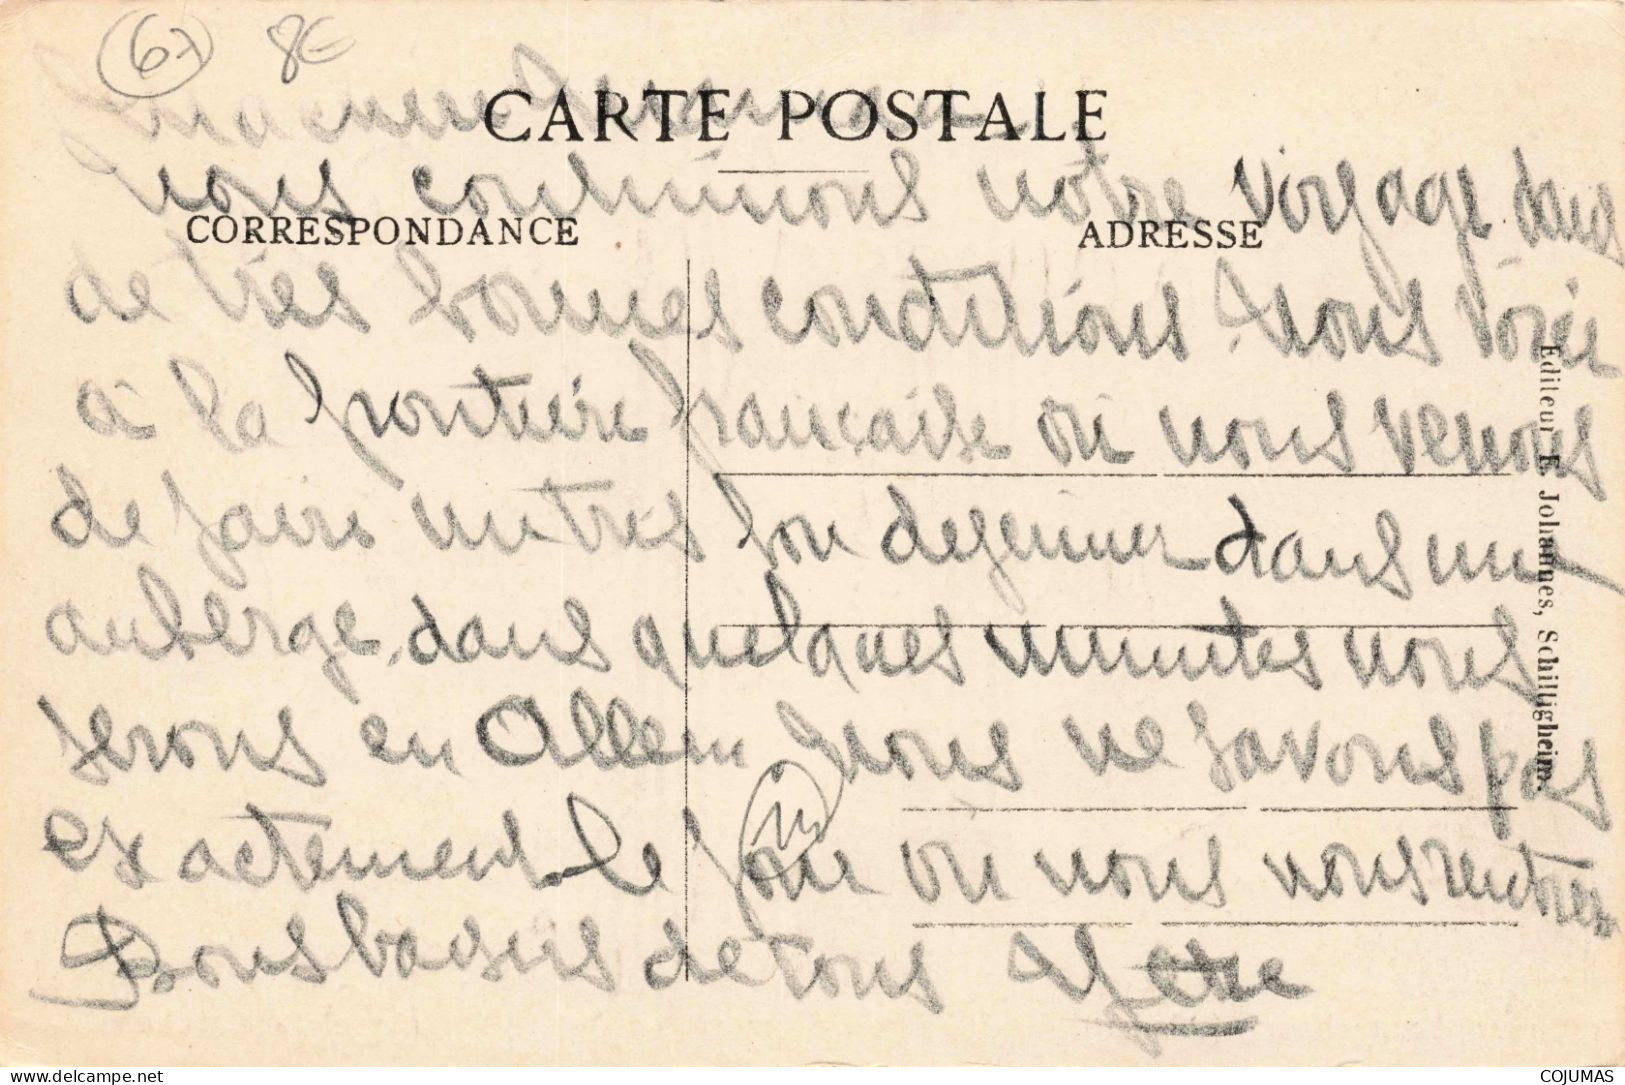 67 8€
CARTE POSTALE
nous continuons notre voyage dans
CORRESPONDANCE ADRESSE
de très bonnes conditions nous voici
à la frontière française ou nous venons
de faire un très bon dejeuner dans une
auberge, dans quelques minutes nous
serons en Allem nous ne savons pas
exactement le jour ou nous nous rentrer
Bons baisers de tous
Editeur E. Johannes, Schiltigheim.
delcampe.net
COJUMAS